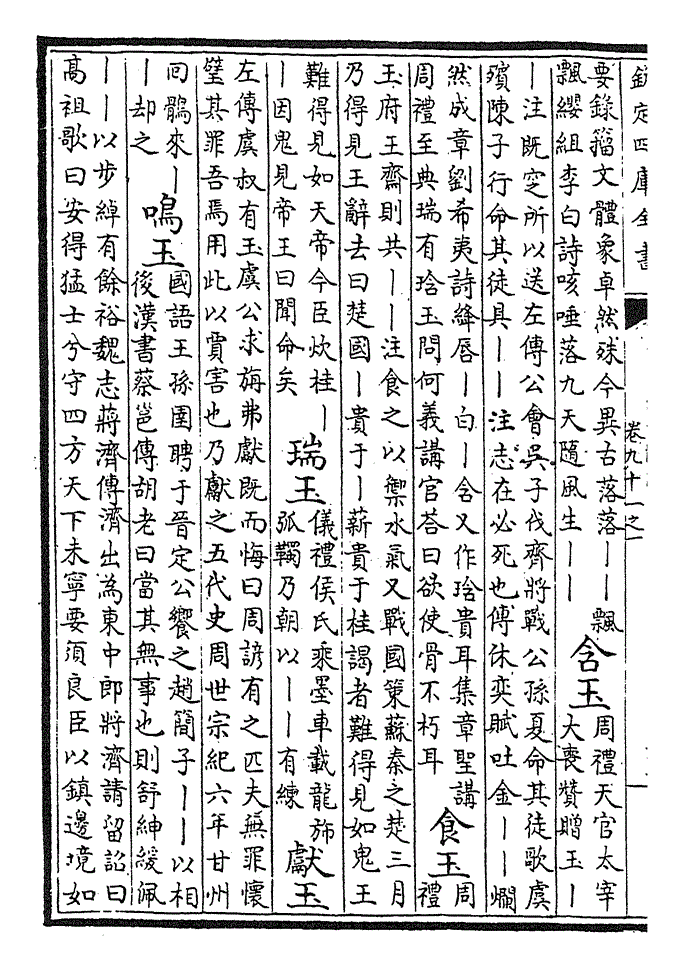 欽定四庫全書
卷九十一之一
要錄籀文體象卓然殊今異古落落｜｜飄
飄纓組李白詩咳唾落九天隨風生｜｜
含玉
周禮天官太宰
大喪贊贈玉｜
｜注既窆所以送左傳公會吳子伐齊將戰公孫夏命其徒歌虞
殯陳子行命其徒具｜｜注志在必死也傅休奕賦吐金｜｜爛
然成章劉希夷詩絳唇｜白｜含又作琀貴耳集章聖講
周禮至典瑞有琀玉問何義講官荅曰欲使骨不朽耳
食玉
周
禮
玉府王齋則共｜｜注食之以禦水氣又戰國策蘇秦之楚三月
乃得見王辭去曰楚國｜貴于｜薪貴于桂謁者難得見如鬼王
難得見如天帝今臣炊桂｜
｜因鬼見帝王曰聞命矣
瑞玉
儀禮侯氏乘墨車載龍旂
弧韣乃朝以｜｜有繅
獻玉
左傳虞叔有玉虞公求旃弗獻既而悔曰周諺有之匹夫無罪懷
璧其罪吾焉用此以賈害也乃獻之五代史周世宗紀六年甘州
回鶻來｜
｜却之
鳴玉
國語王孫圉聘于晉定公饗之趙簡子｜｜以相
後漢書蔡邕傳胡老曰當其無事也則舒紳緩佩
｜｜以步綽有餘裕魏志蔣濟傳濟出為東中郎將濟請留詔曰
高祖歌曰安得猛士兮守四方天下未寧要須良臣以鎮邊境如